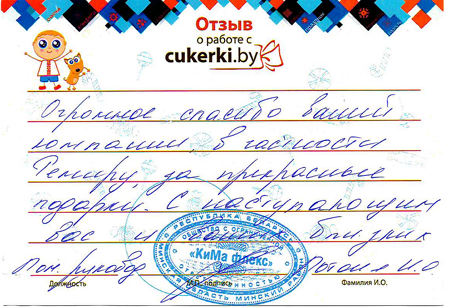 Отзыв
о работе с
cukerki.by
Огромное спасибо вашей
компании, в частности
Темиру, за прекрасные
подарки. С наступающим
вас и ваших близких
Пом. руковод
Должность
М.П. подпись
Фамилия И.О.
РЕСПУБЛИКА БЕЛАРУСЬ
«КиМа флекс»
МИНСКАЯ ОБЛАСТЬ МИНСКИЙ РАЙОН